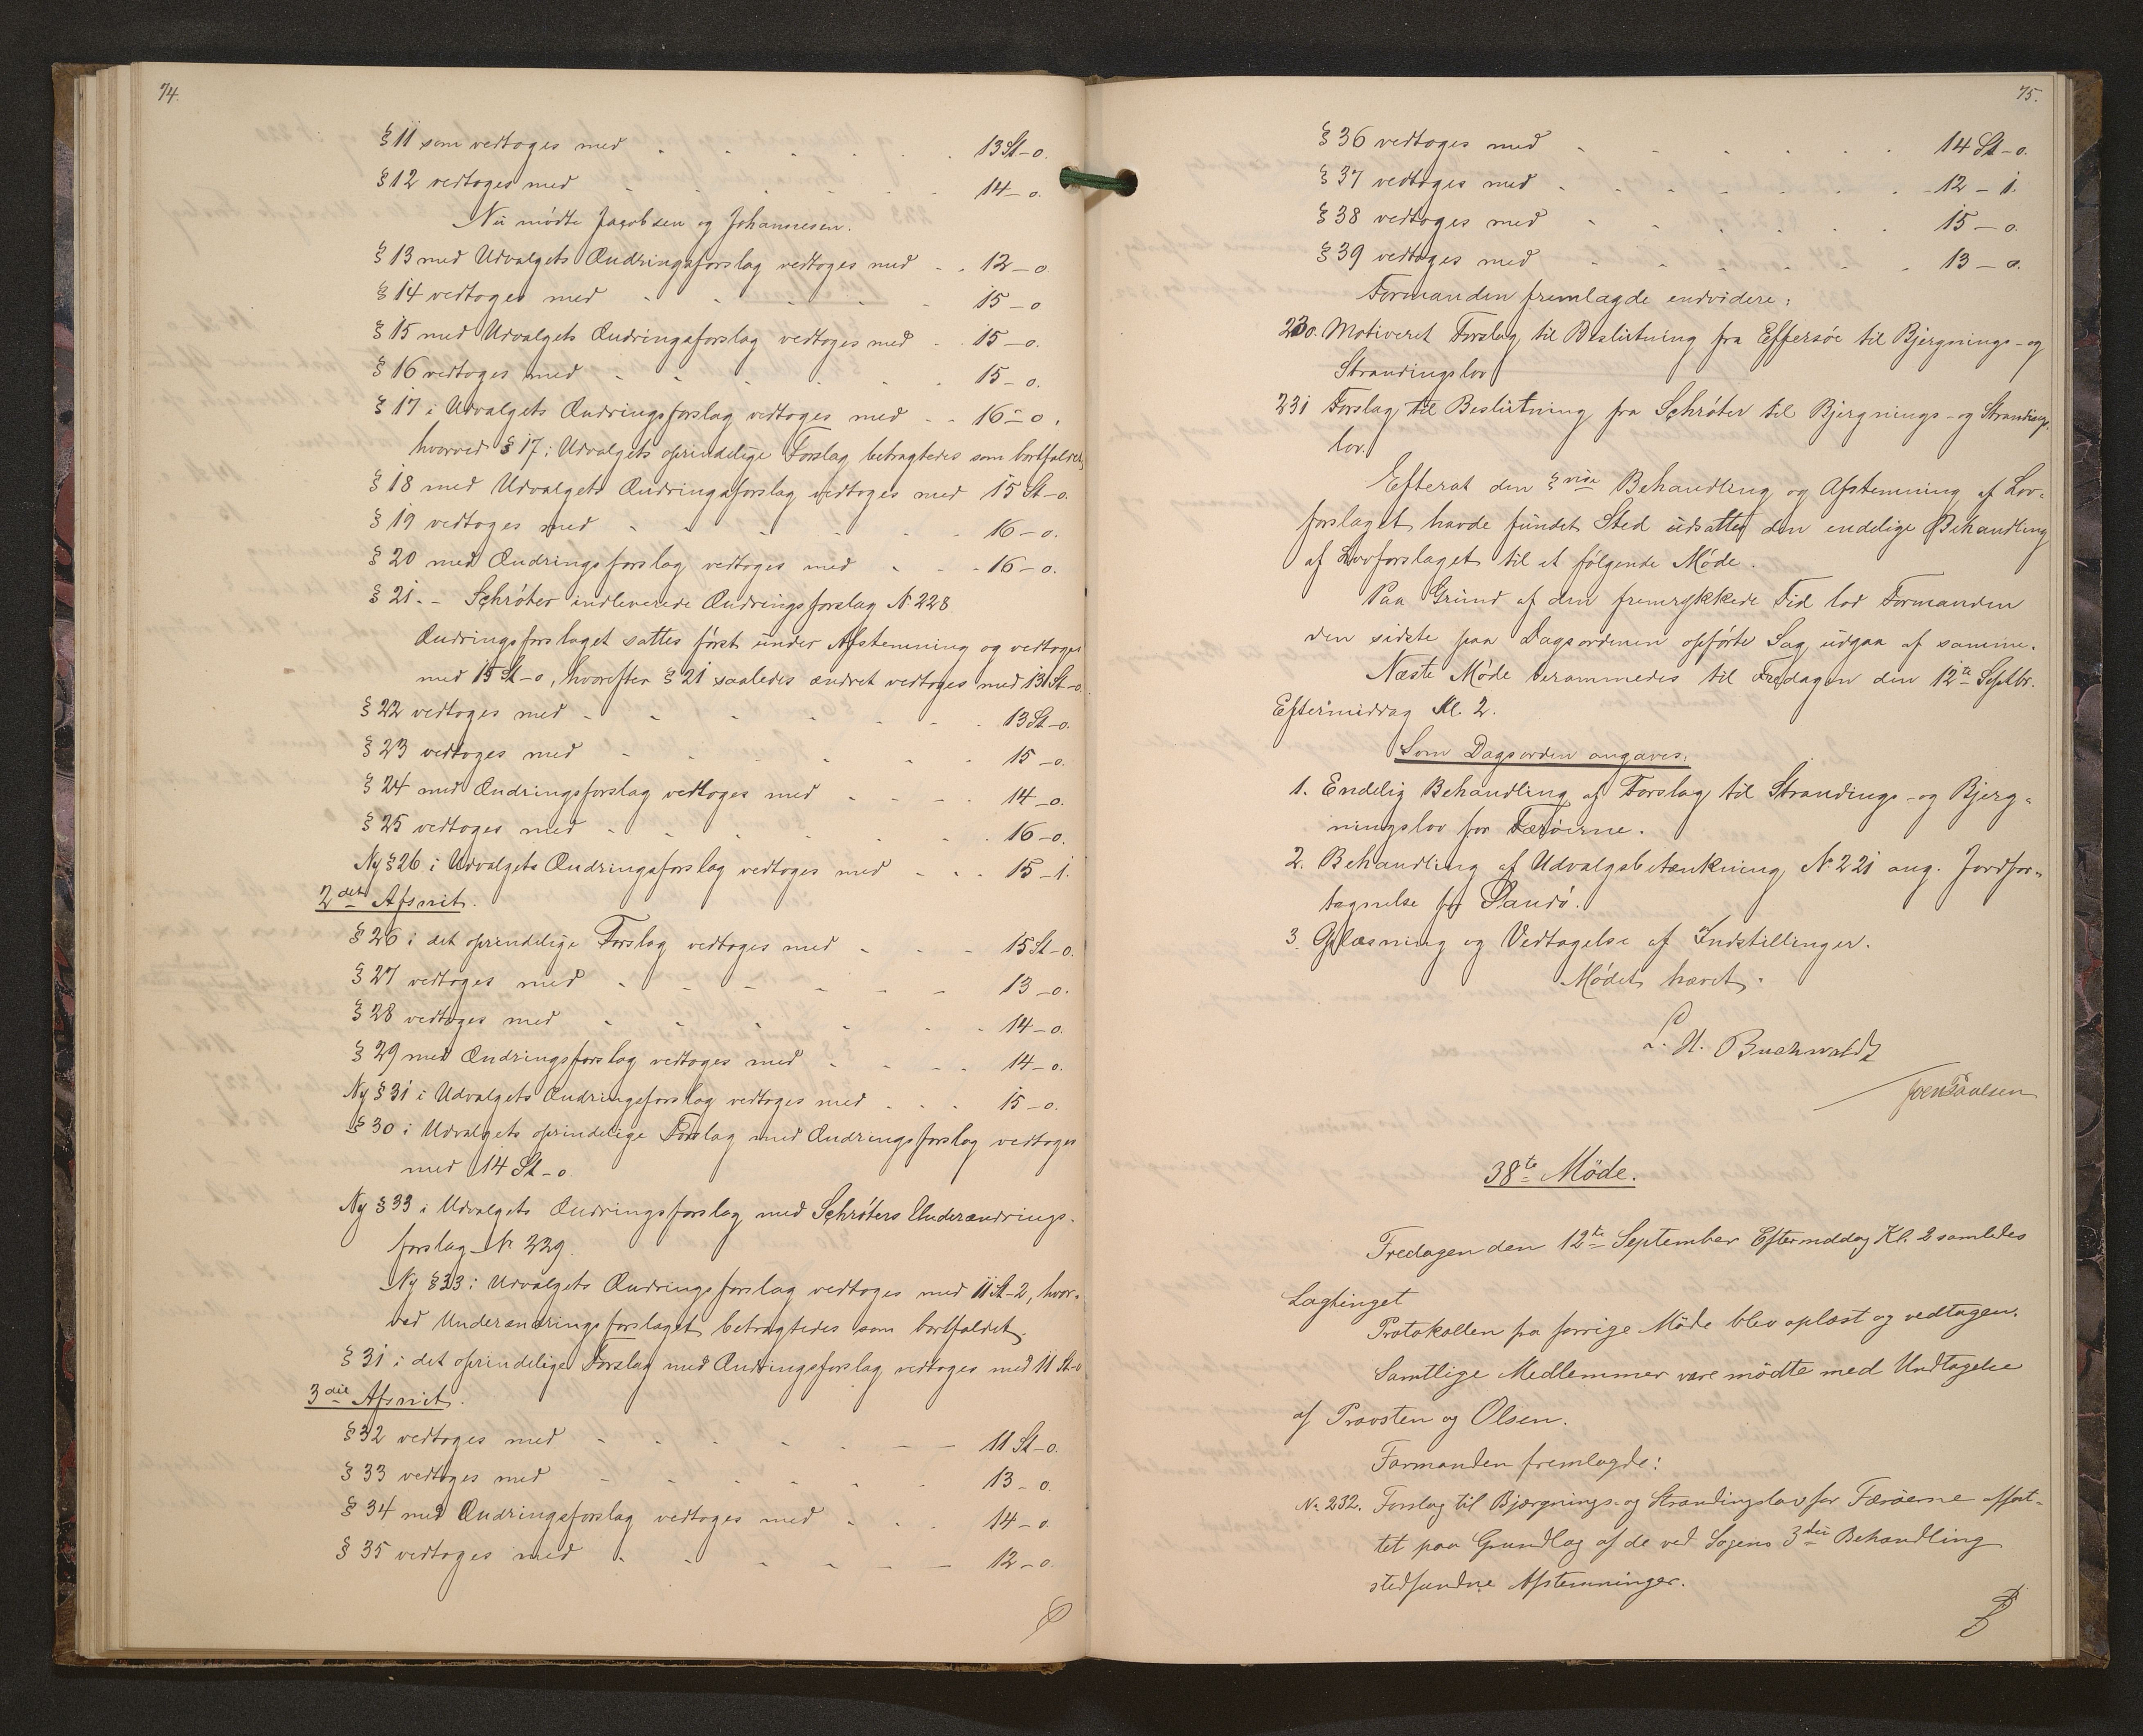 74.
§ 11 som vedtoges med 13 St – 0.
§ 12 vedtoges med 14 – 0.
Nu mødte Jacobsen og Johannesen.
§ 13 med Udvalgets Ændringsforslag vedtoges med 12 – 0
§ 14 vedtoges med 15 – 0
§ 15 med Udvalgets Ændringsforslag vedtoges med 15 – 0.
§ 16 vedtoges med 15 – 0.
§ 17 i Udvalgets Ændringsforslag vedtoges med 16 – 0.
hvorved § 17 i Udvalgets oprindelige Forslag betragtedes som bortfaldet
§ 18 med Udvalgets Ændringsforslag vedtoges med 15 St – 0.
§ 19 vedtoges med 16 – 0.
§ 20 med Ændringsforslag vedtoges med 16 – 0.
§ 21. – Schrøter indleverede Ændringsforslag N. 228
Ændringsforslaget sattes først under Afstemning og vedtoges
med 15 St – 0, hvorefter § 21 saaledes ændret vedtoges med 13 St – 0.
§ 22 vedtoges med 13 St – 0.
§ 23 vedtoges med 15 – 0.
§ 24 med Ændringsforslag vedtoges med 14 – 0.
§ 25 vedtoges med 16 – 0.
Ny § 26 i Udvalgets Ændringsforslag vedtoges med 15 – 1.
2det Afsnit.
§ 26 i det oprindelige Forslag vedtoges med 15 St – 0.
§ 27 vedtoges med 13 – 0.
§ 28 vedtoges med 14 – 0.
§ 29 med Ændringsforslag vedtoges med 14 – 0.
Ny § 31 i Udvalgets Ændringsforslag vedtoges med 15 – 0.
§ 30 i Udvalgets oprindelige Forslag med Ændringsforslag vedtoges
med 14 St – 0.
Ny § 33 i Udvalgets Ændringsforslag med Schrøters Underændrings-
forslag N. 229.
Ny § 33 i Udvalgets Ændringsforslag vedtoges med 11 St – 2, hvor-
ved Underændringsforslaget betragtedes som bortfaldet.
§ 31 i det oprindelige Forslag med Ændringsforslag vedtoges med 11 St – 0
3die Afsnit.
§ 32 vedtoges med 11 St – 0.
§ 33 vedtoges med 13 – 0.
§ 34 med Ændringsforslag vedtoges med 14 – 0.
§ 35 vedtoges med 12 – 0.
75.
§ 36 vedtoges med 14 St – 0.
§ 37 vedtoges med 12 – 1.
§ 38 vedtoges med 15 – 0.
§ 39 vedtoges med 13 – 0.
Formanden fremlagde endvidere:
230. Motiveret Forslag til Beslutning fra Effersøe til Bjergnings- og
Strandingslov
231 Forslag til Beslutning fra Schrøter til Bjergnings- og Strandings-
lov.
Efterat den §vise Behandling og Afstemning af Lov-
forslaget havde fundet Sted udsattes den endelige Behandling
af Lovforslaget til et følgende Møde.
Paa Grund af den fremrykkede Tid lod Formanden
den sidste paa Dagsordenen opførte Sag udgaa af samme.
Næste Møde berammedes til Fredagen den 12te Septbr.
Eftermiddag Kl. 2.
Som Dagsorden angaves:
1. Endelig Behandling af Forslag til Strandings- og Bjerg-
ningslov for Færøerne.
2. Behandling af Udvalgsbetænkning N. 221 ang. Jordfor-
tagnelse for Sandø.
3. Oplæsning og Vedtagelse af Indstillinger.
Mødet hævet.
L. H. Buchwaldt
Poulsen
38te Møde.
Fredagen den 12te September Eftermiddag Kl. 2 samledes
Lagtinget
Protokollen fra forrige Møde blev oplæst og vedtagen.
Samtlige Medlemmer vare mødte med Undtagelse
af Provsten og Olsen.
Formanden fremlagde:
N. 232. Forslag til Bjærgnings- og Strandingslov for Færøerne affat-
tet paa Grundlag af de ved Sagens 3die Behandling
stedfundne Afstemninger.